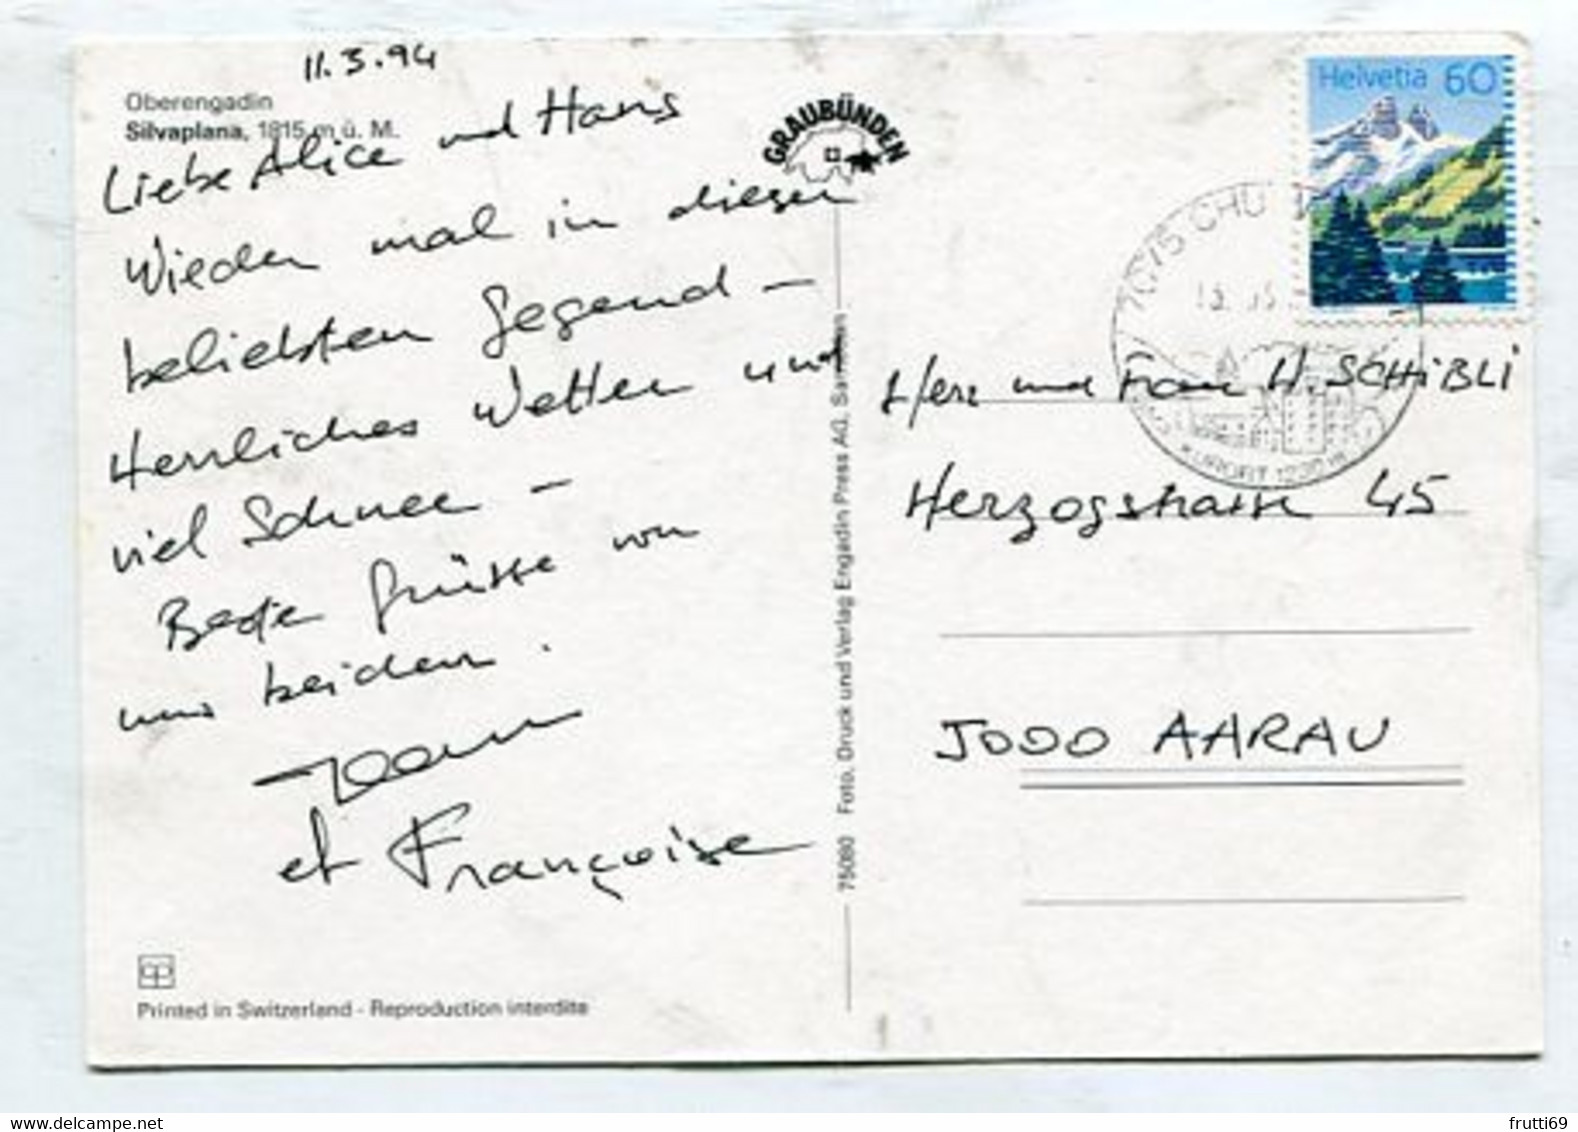 11.3.94
Oberengadin
Silvaplana, 1815 m ü. M.
Liebe Alice und Hans
Wieder mal in dieser
beliebten Gegend -
Herrliches Wetter und
viel Schnee -
Beste Grüsse von
uns beiden.
et Françoise
Printed in Switzerland - Reproduction interdite
GRAUBÜNDEN
75080 Foto, Druck und Verlag Engadin Press AG, Samedan
Helvetia 60
7075 CHU
KURORT 1230 m
Herr und Frau H. SCHIBLI
Herzogstrasse 45
5000 AARAU
frutti69